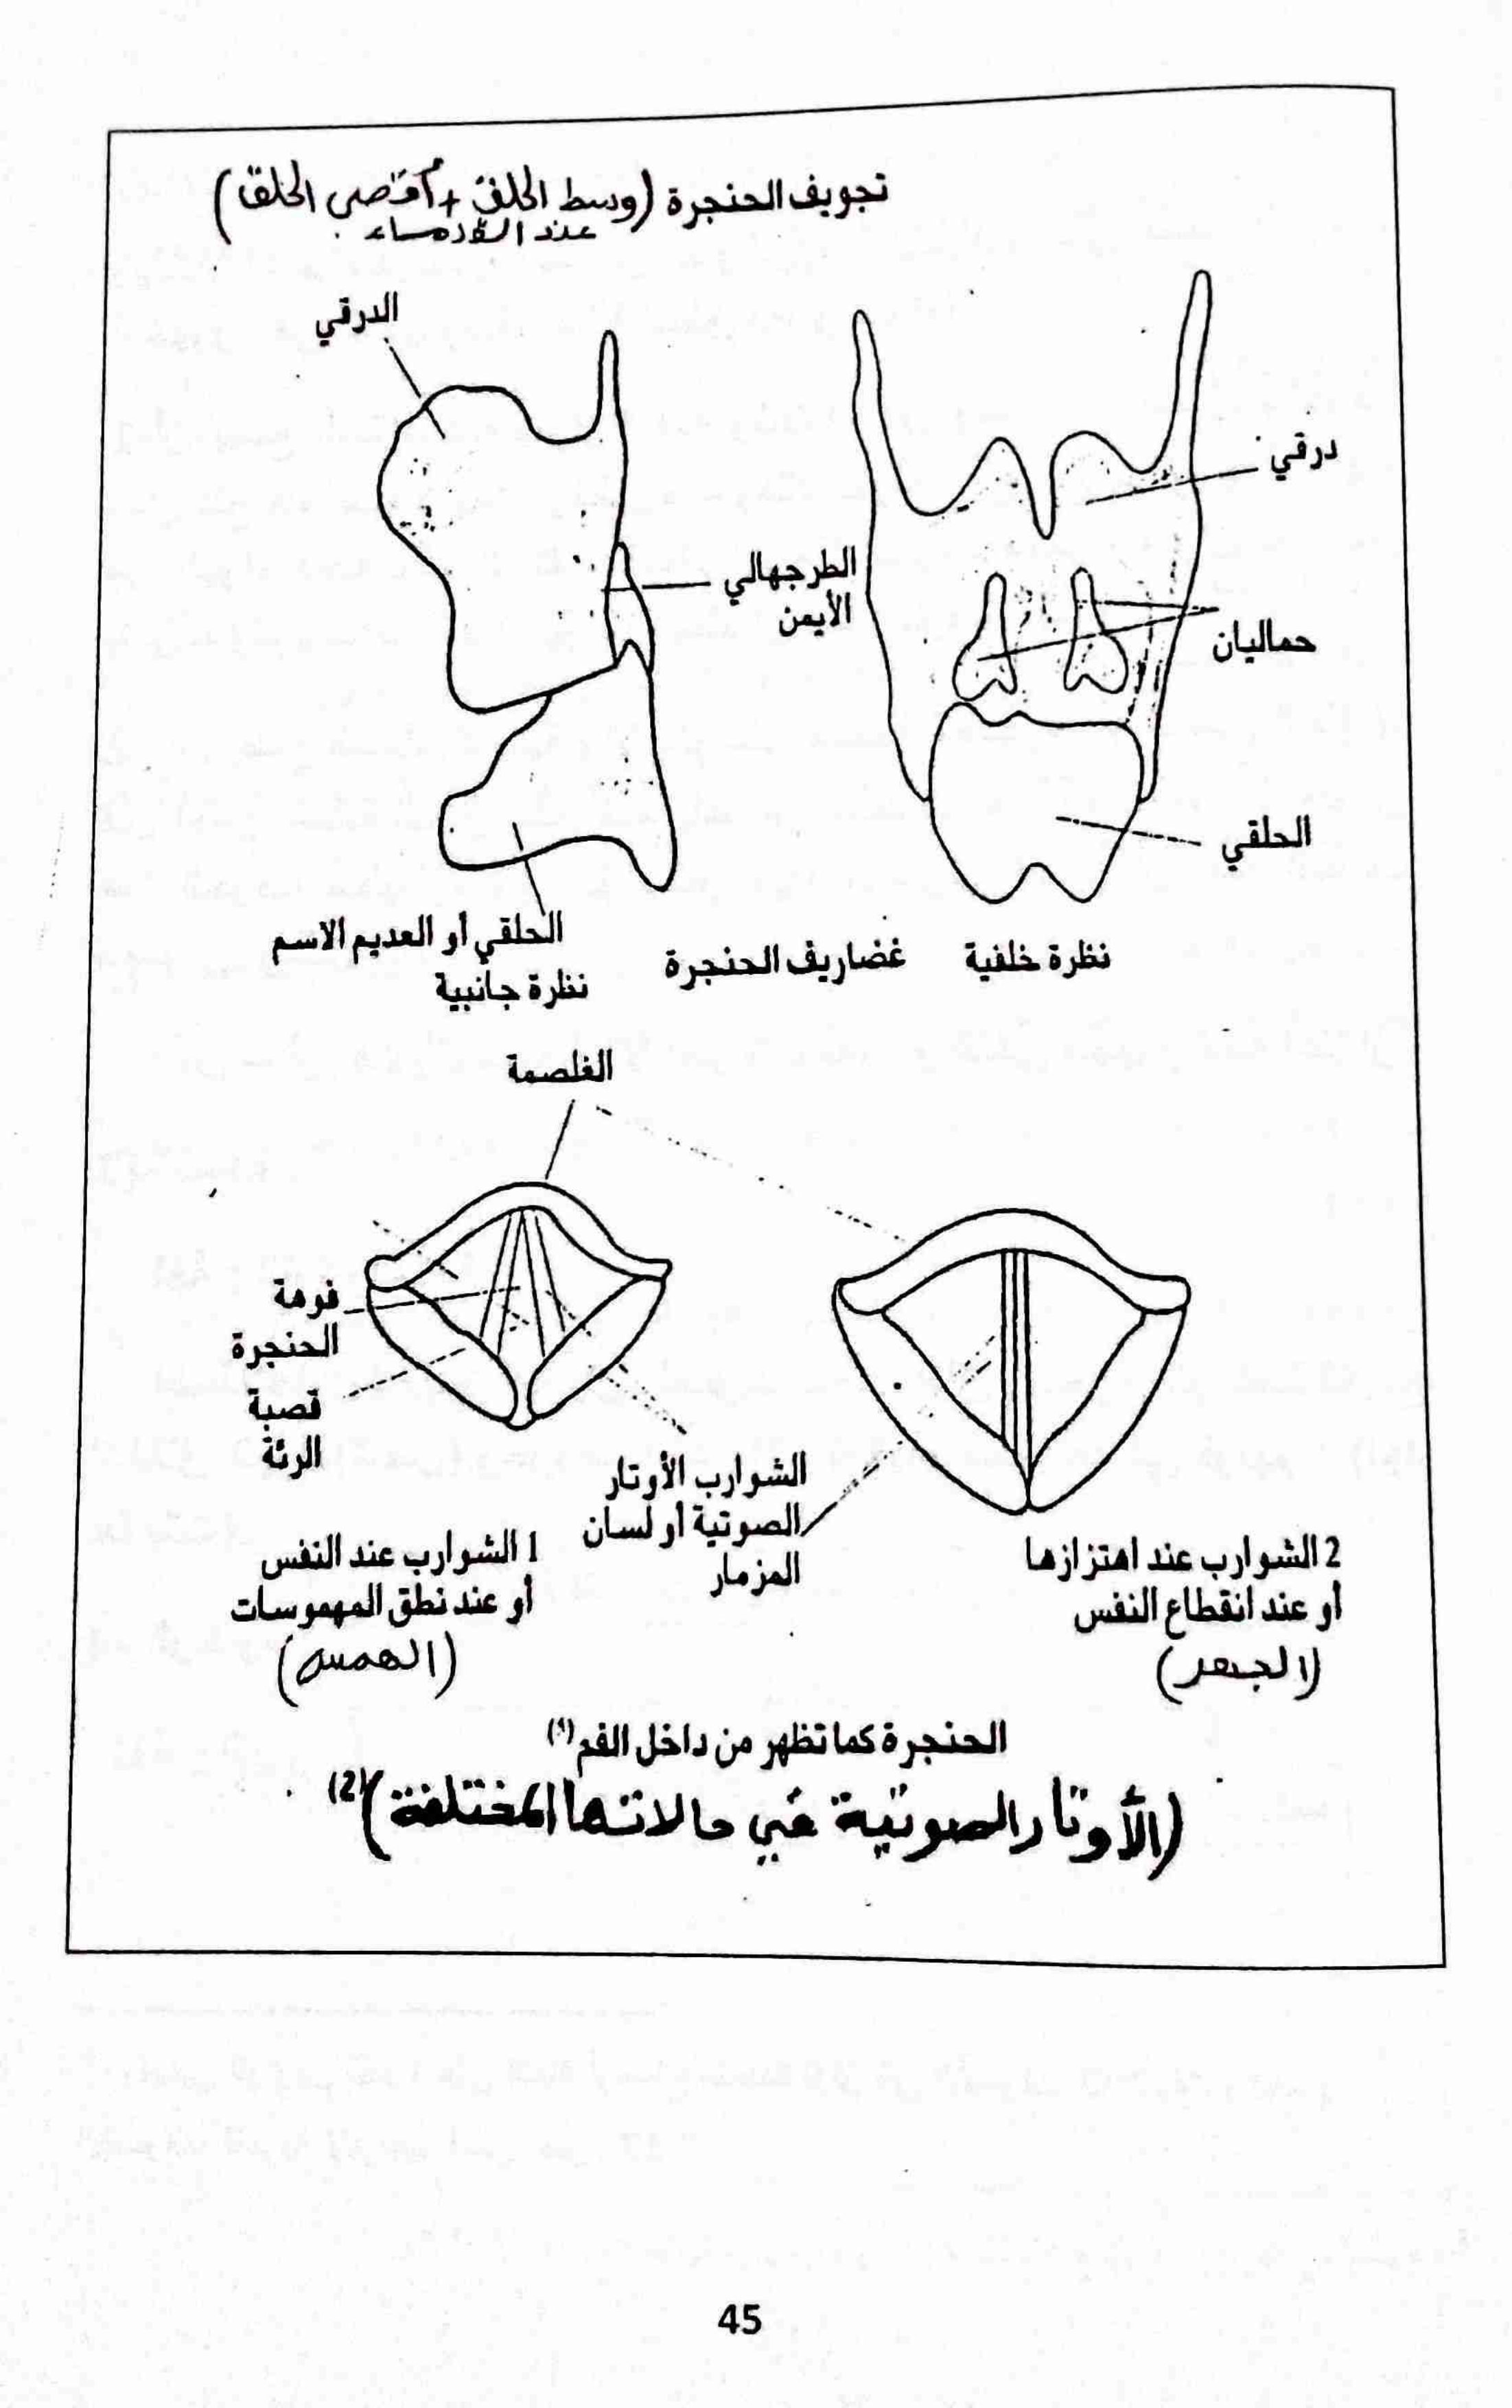 تجويف الحنجرة (وسط الحلق + أقصى الحلق)
عند القدماء
الدرقي
درقي
الطرجهالي
الأيمن
حماليان
الحلقي
الحلقي أو العديم الاسم
نظرة جانبية
غضاريف الحنجرة
نظرة خلفية
الغلصمة
فوهة
الحنجرة
قصبة
الرئة
الشوارب الأوتار
الصوتية أو لسان
المزمار
2 الشوارب عند اهتزازها
أو عند انقطاع النفس
(الجهر)
1 الشوارب عند النفس
أو عند نطق المهموسات
(الهمس)
الحنجرة كما تظهر من داخل الفم (1)
(الأوتار الصوتية في حالاتها المختلفة) (2)
45